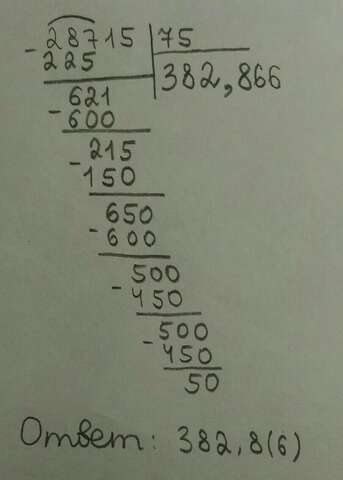 - 28715 | 75
225
382,866
621
- 600
215
- 150
650
- 600
500
- 450
500
- 450
50
Ответ: 382,8(6)